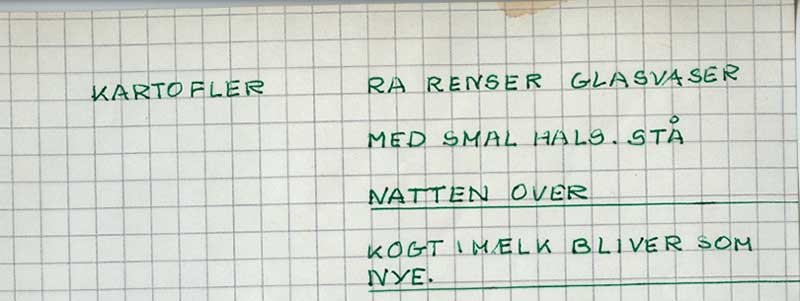 KARTOFLER RA RENSER GLASVASER
MED SMAL HALS. STÅ
NATTEN OVER
KOGT I MÆLK BLIVER SOM
NYE.